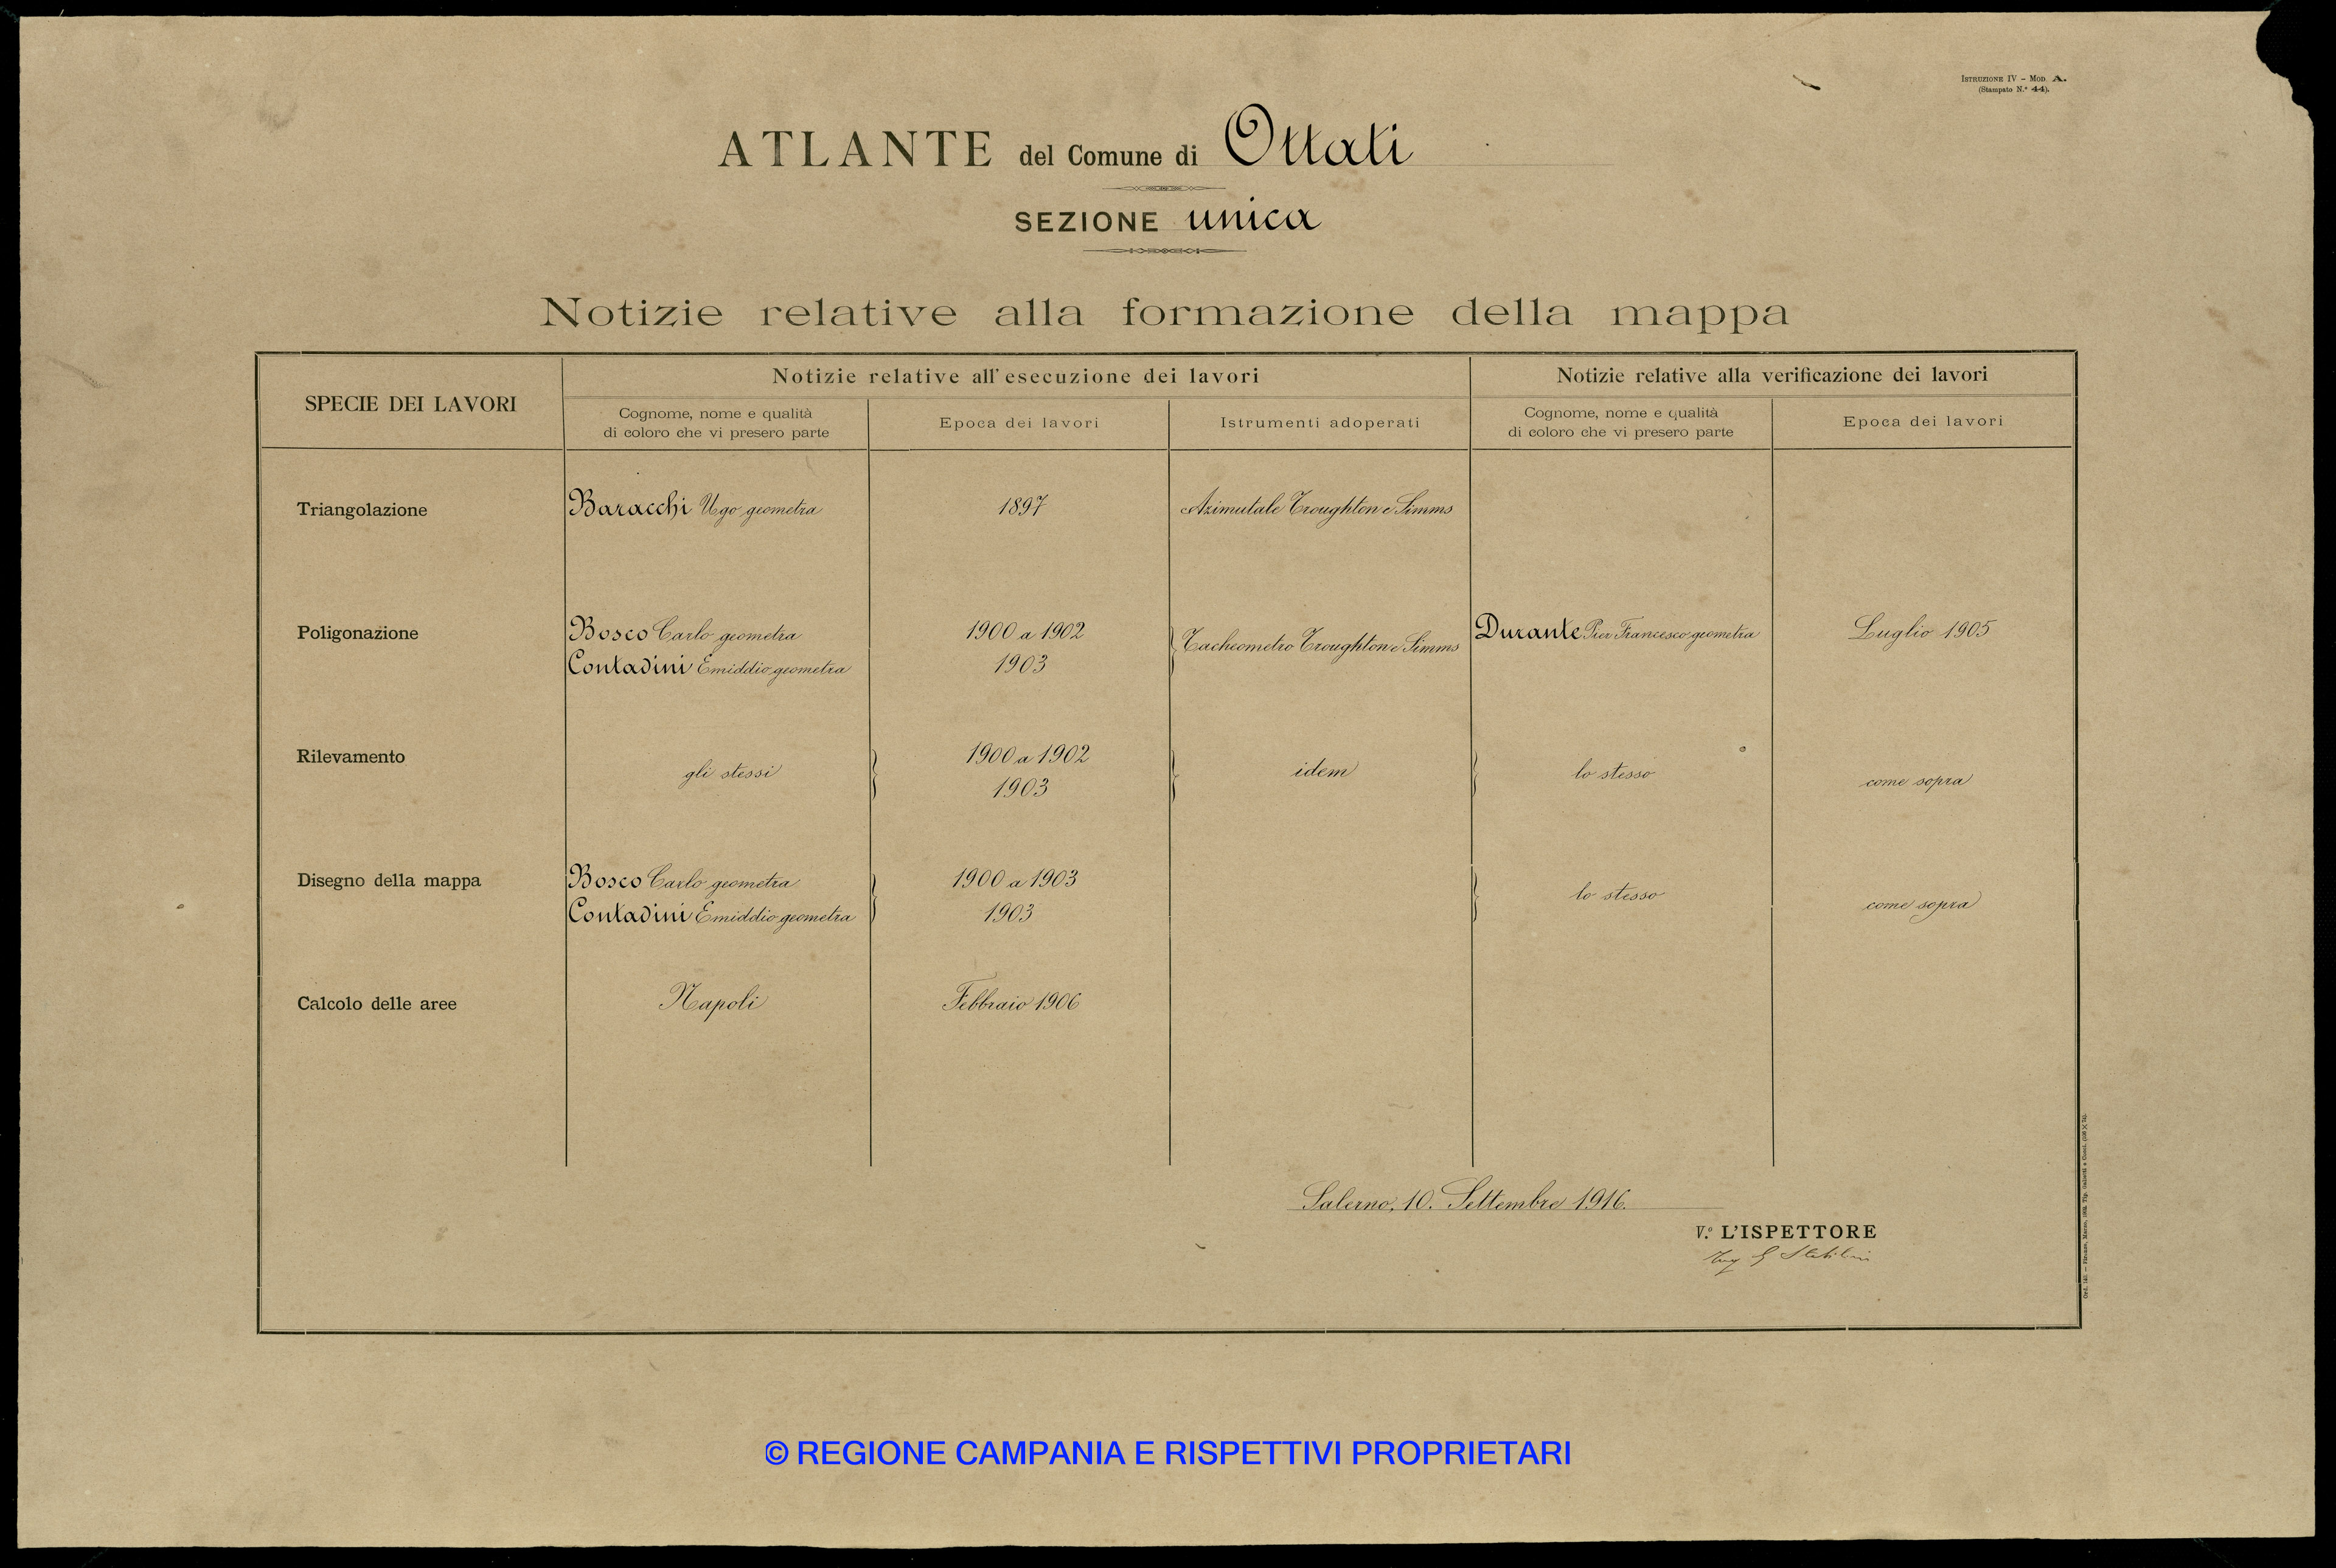 ISTRUZIONE IV – MOD. A.
(Stampato N.º 44).
ATLANTE del Comune di Ottati
SEZIONE unica
Notizie relative alla formazione della mappa
SPECIE DEI LAVORI
Notizie relative all'esecuzione dei lavori
Notizie relative alla verificazione dei lavori
Cognome, nome e qualità
di coloro che vi presero parte
Epoca dei lavori
Istrumenti adoperati
Cognome, nome e qualità
di coloro che vi presero parte
Epoca dei lavori
Triangolazione
Baracchi Ugo geometra
1897
Azimutale Troughton e Simms
Poligonazione
Bosco Carlo geometra
Contadini Emiddio geometra
1900 a 1902
1903
Tacheometro Troughton e Simms
Durante Pier Francesco geometra
Luglio 1905
Rilevamento
gli stessi
1900 a 1902
1903
idem
lo stesso
come sopra
Disegno della mappa
Bosco Carlo geometra
Contadini Emiddio geometra
1900 a 1903
1903
lo stesso
come sopra
Calcolo delle aree
Napoli
Febbraio 1906
Salerno, 10. Settembre 1916.
V.º L'ISPETTORE
© REGIONE CAMPANIA E RISPETTIVI PROPRIETARI